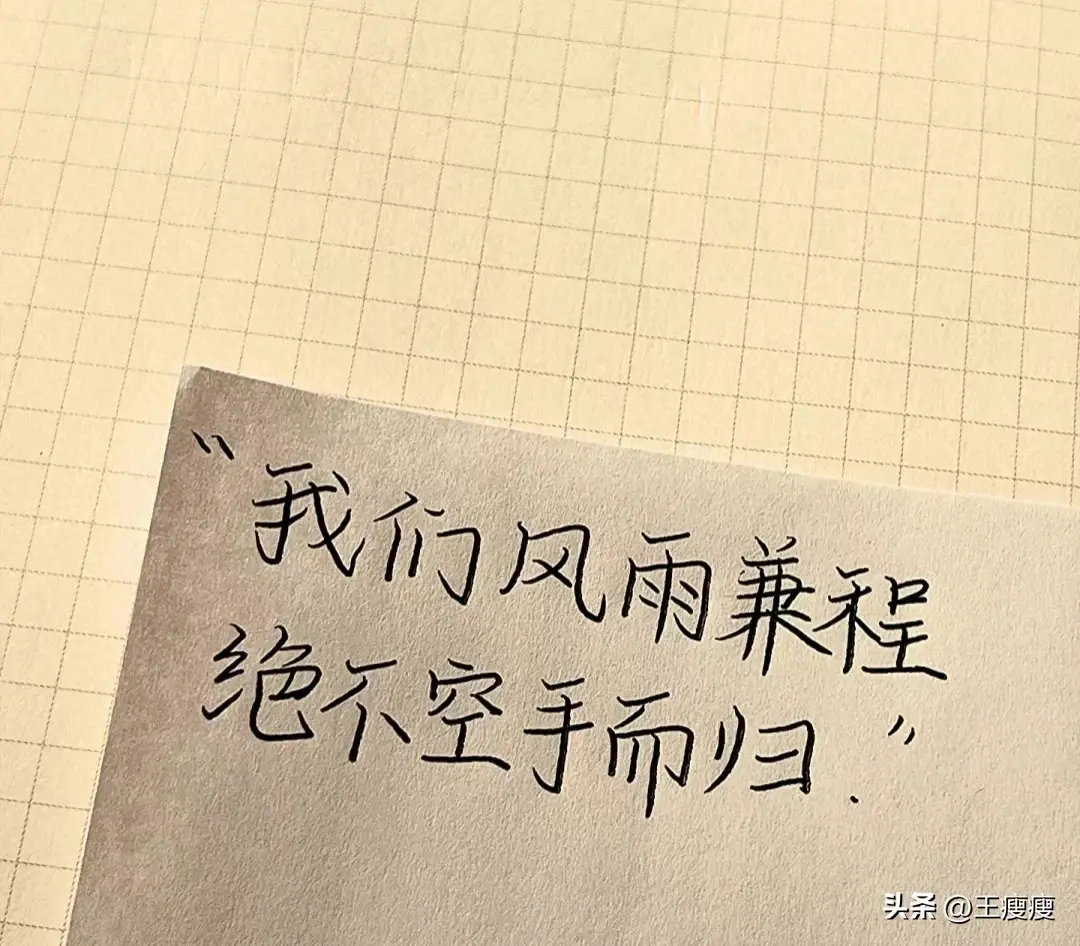 “我们风雨兼程
绝不空手而归.”
头条 @王瘦瘦